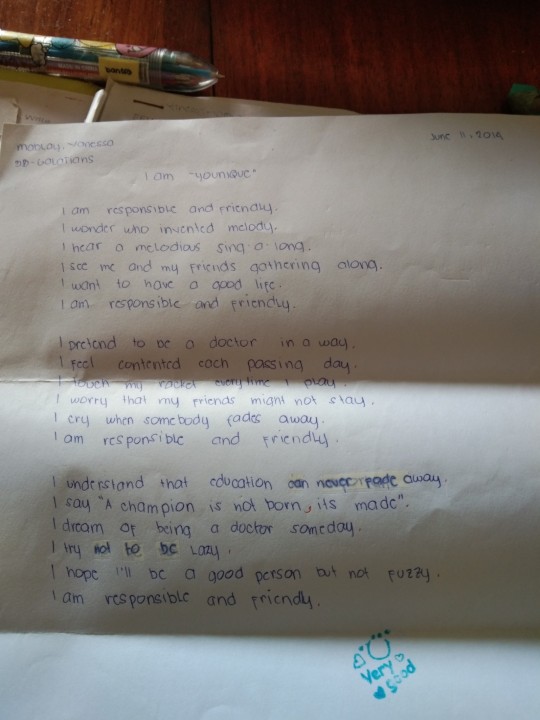 June 11, 2014
I am "YOUNIQUE"
I am responsible and friendly.
I wonder who invented melody.
I hear a melodious sing a long.
I see me and my friends gathering along.
I want to have a good life.
I am responsible and friendly.
I pretend to be a doctor in a way.
I feel contented each passing day.
I touch my racket everytime I play.
I worry that my friends might not stay.
I cry when somebody fades away.
I am responsible and friendly.
I understand that education can never fade away.
I say "A champion is not born, its made".
I dream of being a doctor someday.
I try not to be lazy.
I hope I'll be a good person but not fuzzy.
I am responsible and friendly.
Very
Good